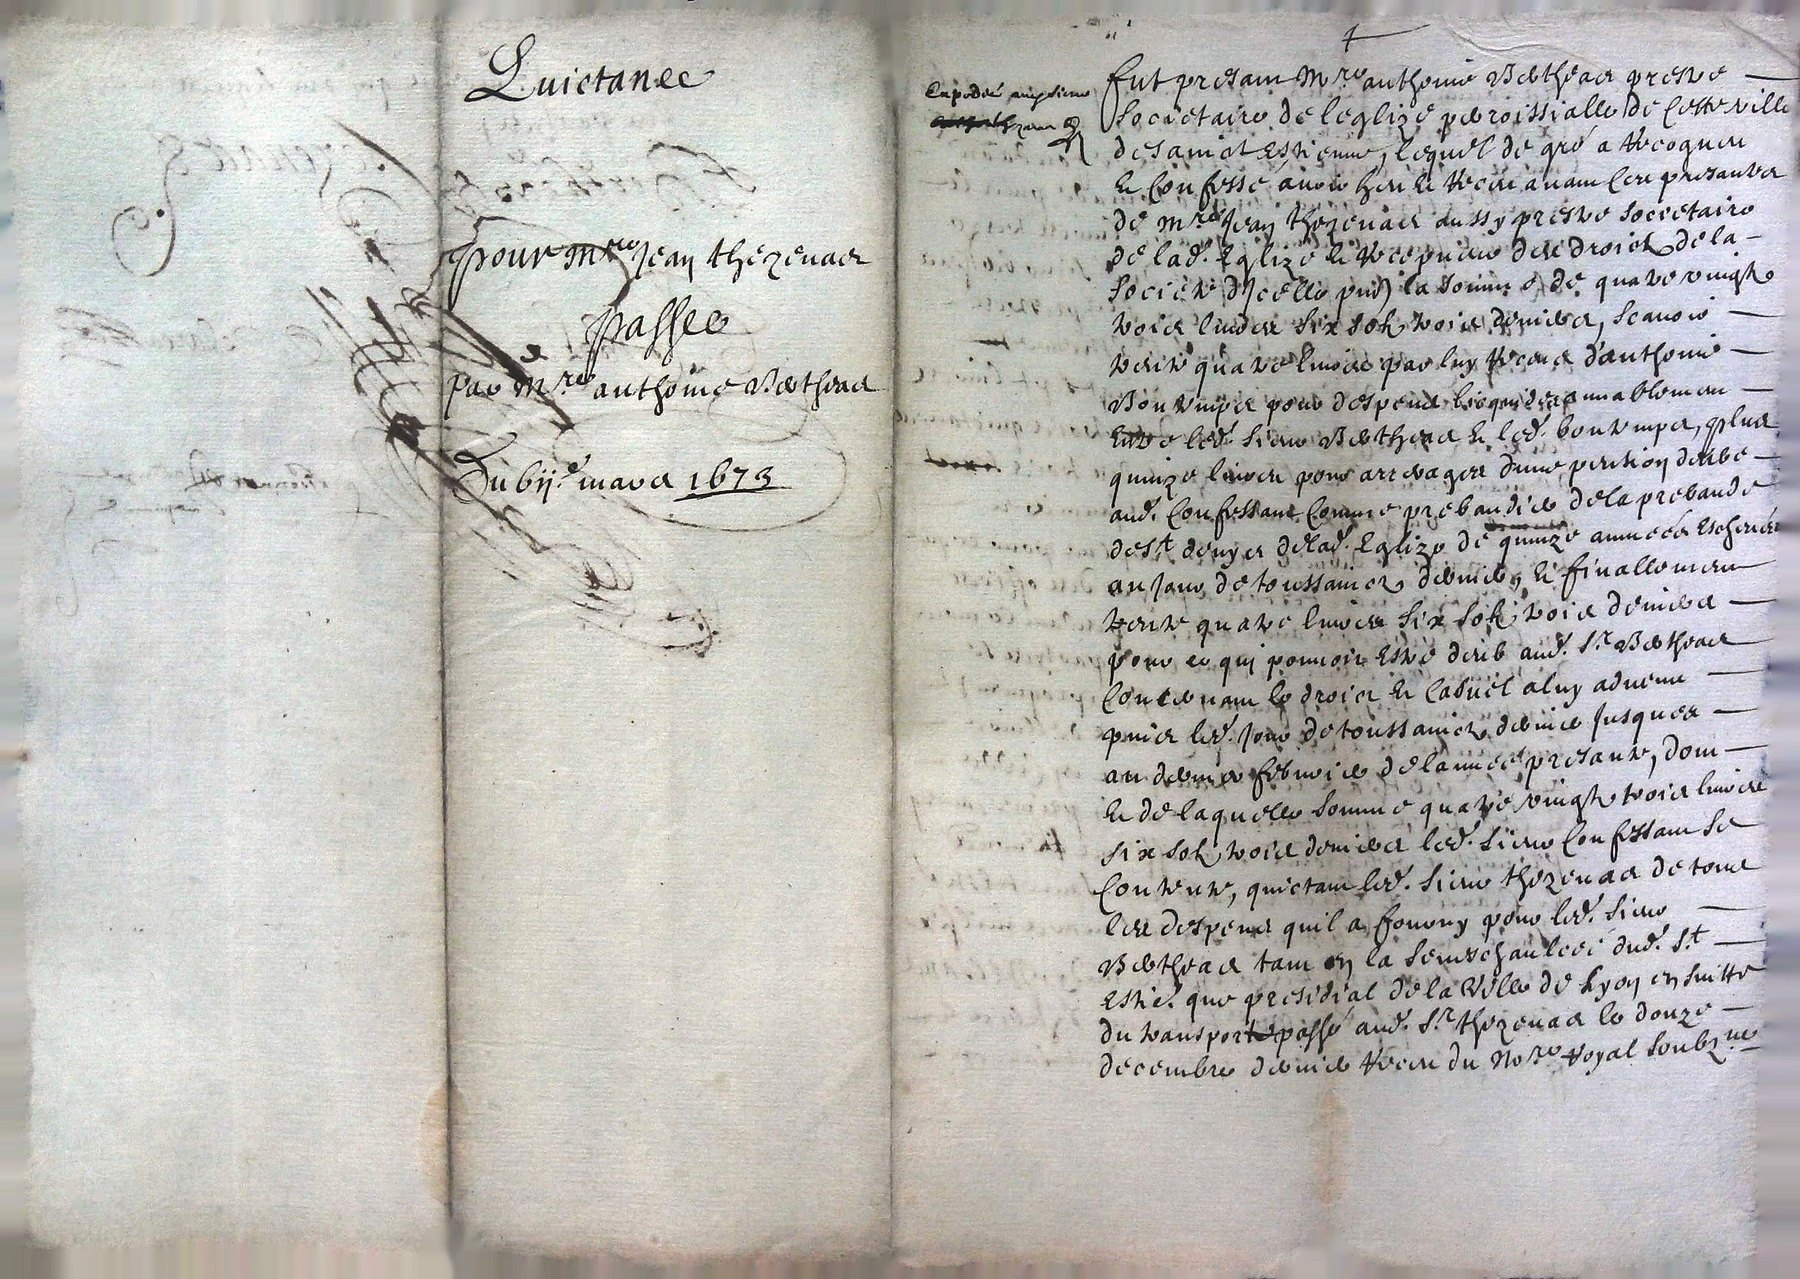 Quictance
pour Mre Jean Thezenas
Passee
par Mre Anthoine Bertheas
Du bije mars 1673
Expedié audit sieur
Fut presant Mre Anthoine Bertheas prestre
societaire de leglize parroissialle de ceste ville
de sainct Estienne, lequel de gré a recogneu
et confessé avoir heu et receu avant ces presantes
de Mre Jean Thezenas aussy prestre societaire
de lad. Eglize et recepveur des droicts de la
societé dicelle la somme de quatre vingts
trois livres six sols trois deniers, scavoir
trente quatre livres par luy receus d'Anthoine
Bontemps pour despens liquidés amiablement
entre led. sieur Bertheas et led. Bontemps, plus
quinze livres pour arrerages dune pention deube
aud. confessant comme prebandier de la prebande
de St Denys de lad. Eglize de quinze années escheües
au jour de toussaincts dernier, et finallement
trente quatre livres six sols trois deniers
pour ce qui pouvoit estre deub aud. Sr Bertheas
concernant le droict et casuel a luy advenu
puis led. jour de toussaincts dernier jusques
au dernier febvrier de lannée presante, dont
et de laquelle somme quatre vingts trois livres
six sols trois deniers led. sieur confessant se
contente, quictant led. sieur Thezenas de tous
les despens quil a fourny pour led. sieur
Bertheas tant en la seneschaulcée dud. St
Estie. que presidial de la ville de Lyon en suitte
du transport passé aud. Sr Thezenas le douze
decembre dernier receu du Nore Royal soubzne